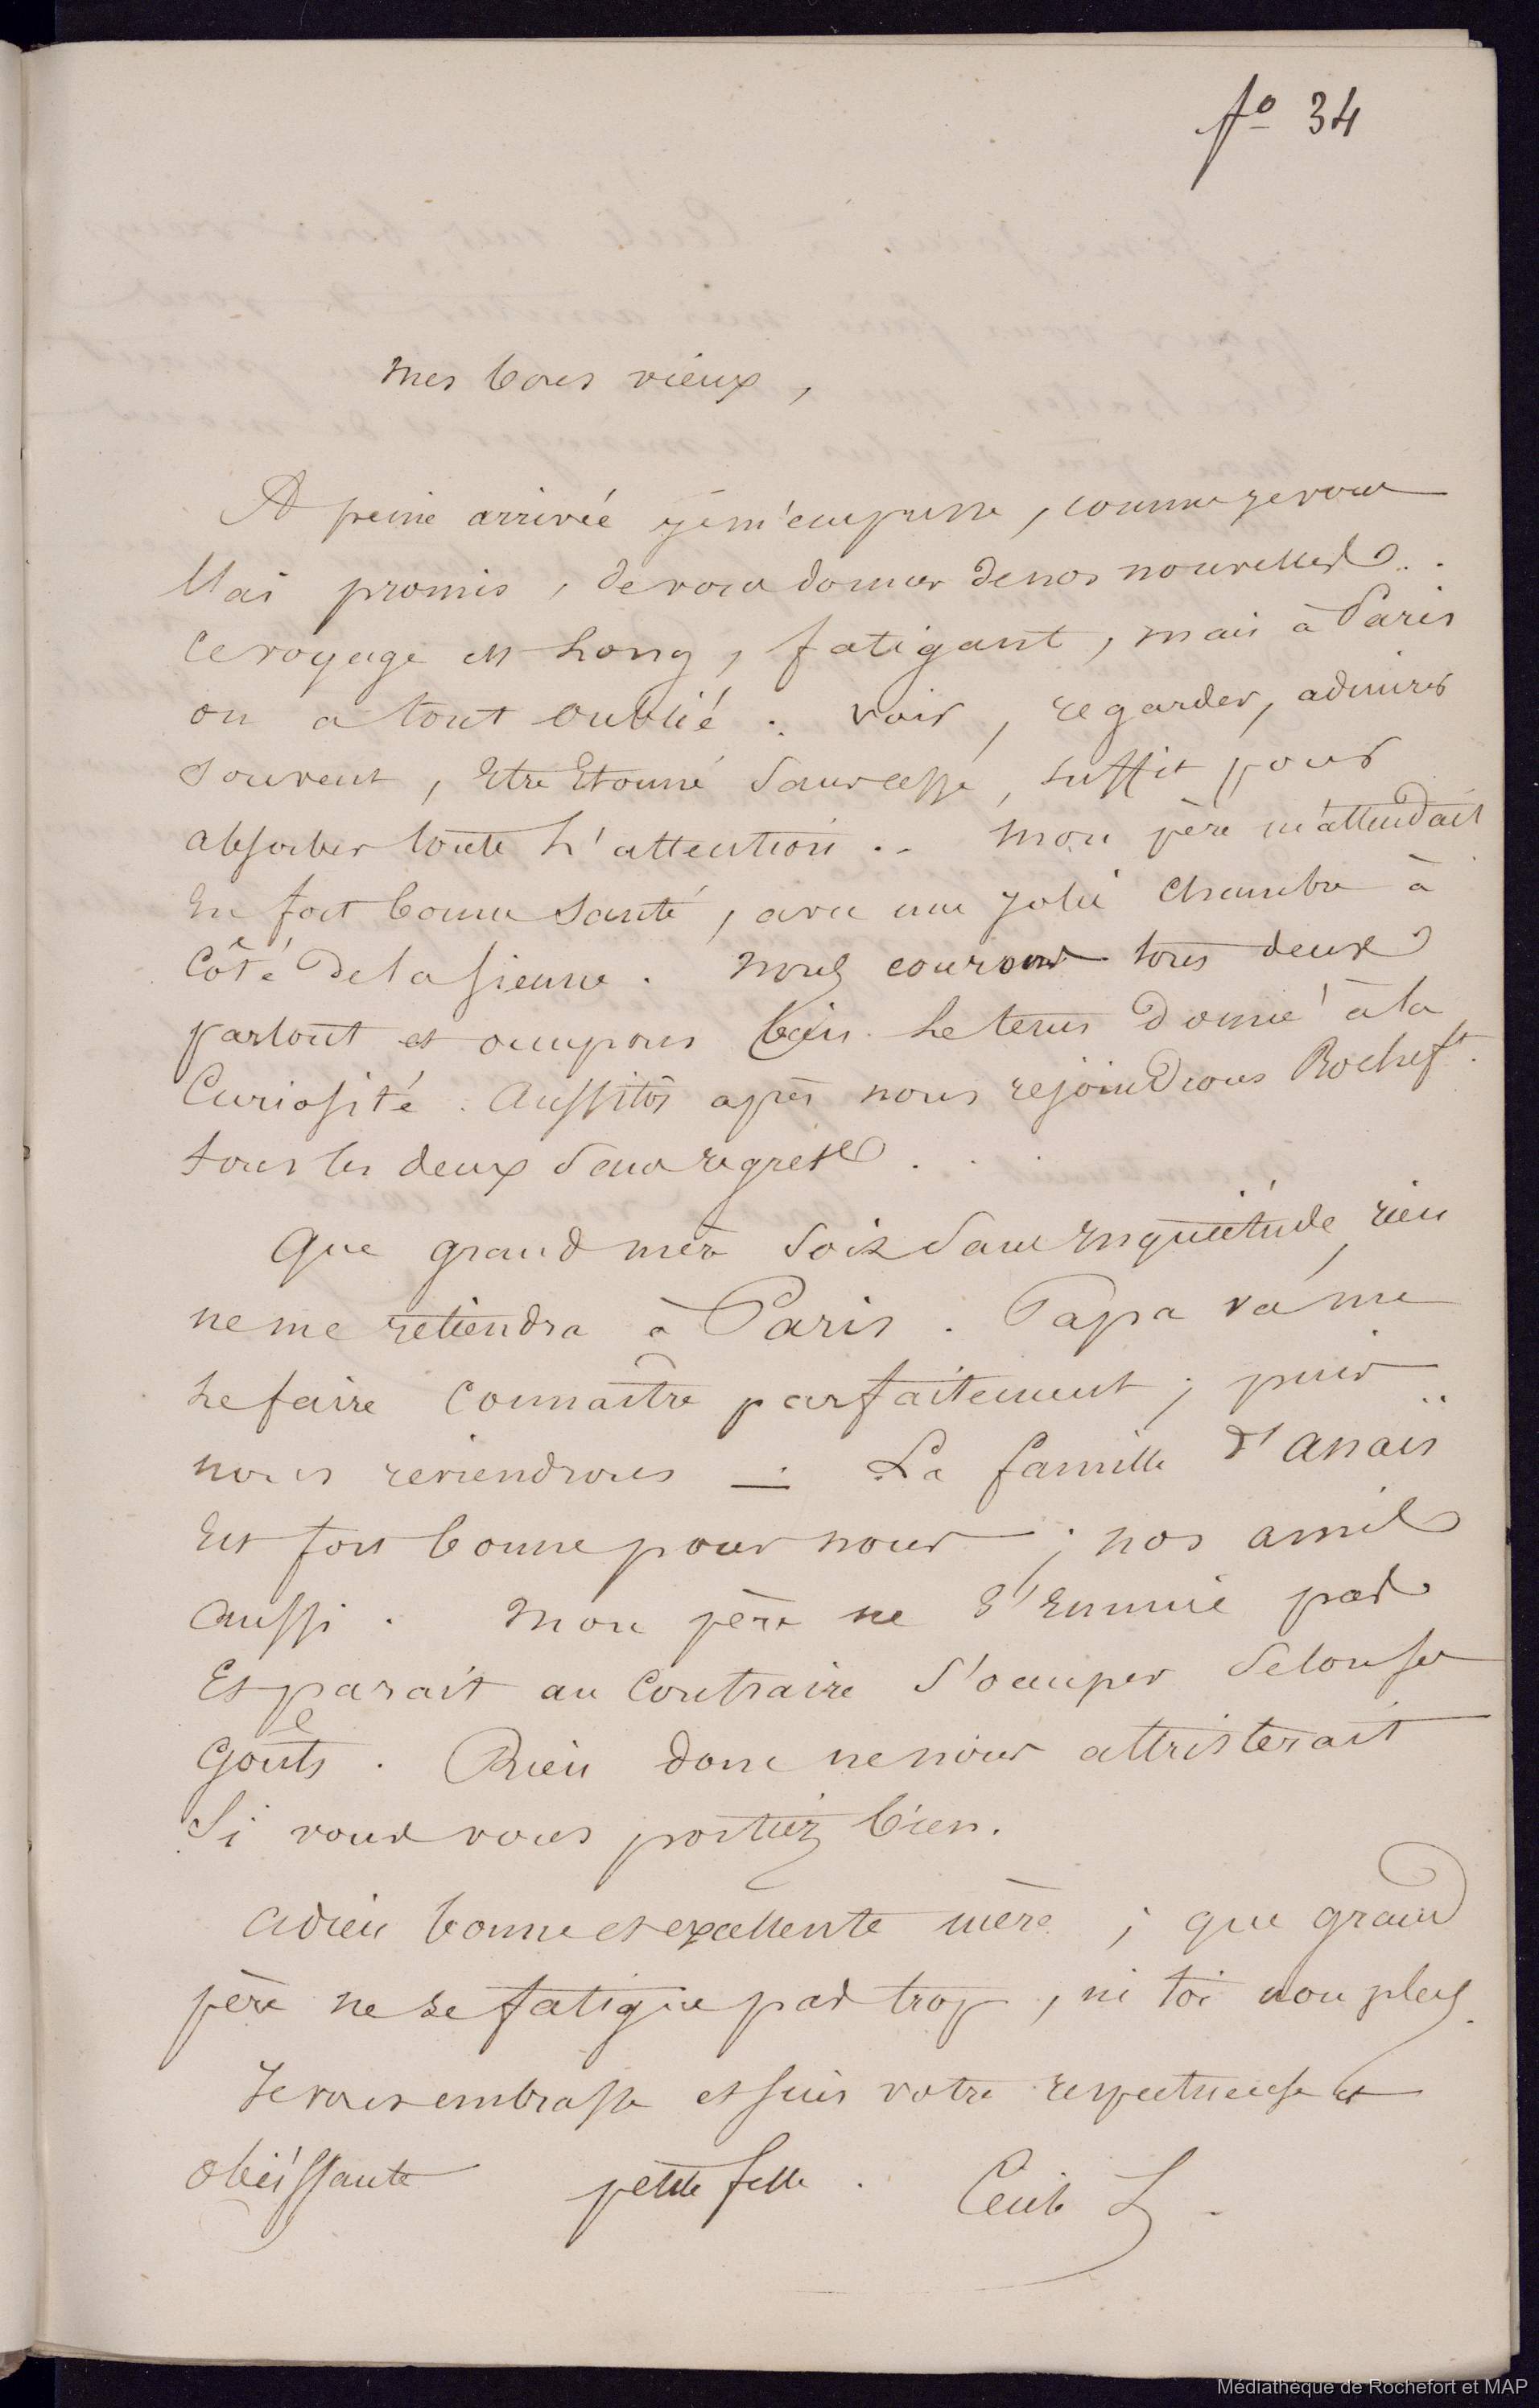 fº 34
Mes bons vieux,
A peine arrivée je m'empresse, comme je vous
l'ai promis, de vous donner de nos nouvelles..
Ce voyage est long, fatigant, mais à Paris
on a tout oublié : voir, regarder, admirer
souvent, être étonné sans cesse, suffit pour
absorber toute l'attention.. Mon père m'attendait
en fort bonne santé, avec une jolie chambre à
côté de la sienne. Nous courons tous deux
partout et occupons bien le tems donné à la
curiosité. Aussitôt après nous rejoindrons Rocheft.
tous les deux sans regrets...
Que grand mère soit sans inquiétude, rien
ne me retiendra à Paris. Papa va me
le faire connaître parfaitement ; puis
nous reviendrons —. La famille d'Anaïs
est fort bonne pour nous ; nos amis
aussi. Mon père ne s'ennuie pas
et parait au contraire s'occuper selon ses
goûts. Rien donc ne nous attristerait
si vous vous portiez bien.
Adieu bonne et excellente mère ; que grand
père ne se fatigue pas trop, ni toi non plus.
Je vous embrasse et suis votre respectueuse et
obéissante petite fille. Cécile L.
Médiathèque de Rochefort et MAP